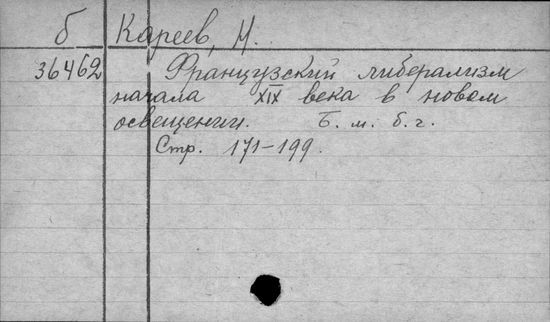 б Кареев, Н.
36462 Французский либерализм
начала XIX века в новом
освещении. Б. м. б. г.
Стр. 171-199.